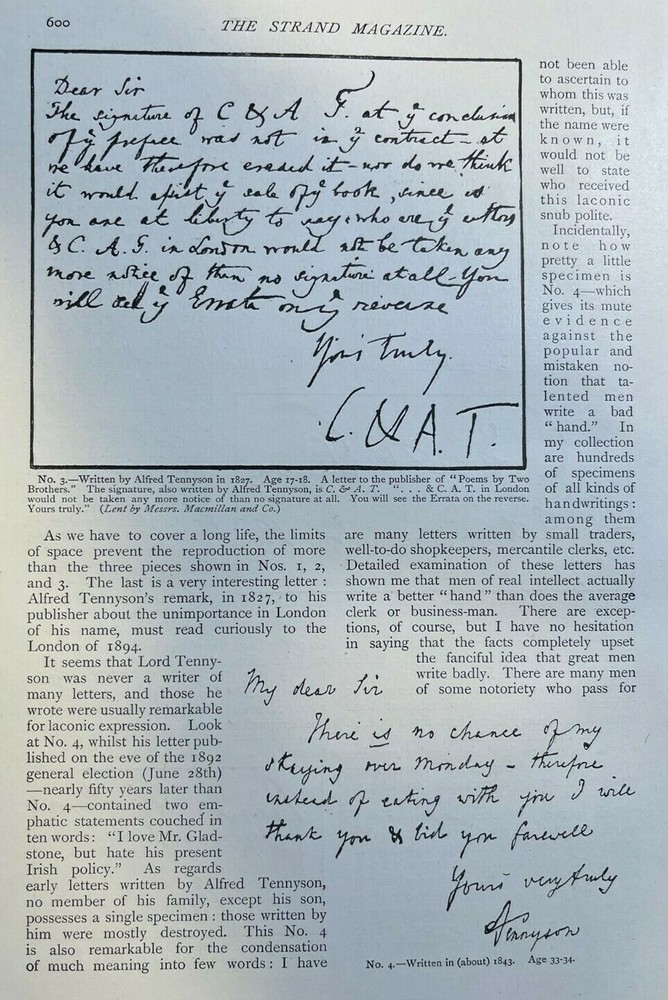 600
THE STRAND MAGAZINE.
Dear Sir
The signature of C & A T. at yͤ conclusion
of yͤ preface was not in yͤ contract — 
we have therefore erased it — nor do we think
it would assist yͤ sale of yͤ book, since 
you are at liberty to say who are yͤ authors
& C. A. T. in London would not be taken any
more notice of than no signature at all — You
will see yͤ Errata on yͤ reverse
Yours truly.
C. & A. T.
No. 3.—Written by Alfred Tennyson in 1827. Age 17-18. A letter to the publisher of "Poems by Two
Brothers." The signature, also written by Alfred Tennyson, is C. & A. T. ". . . & C. A. T. in London
would not be taken any more notice of than no signature at all. You will see the Errata on the reverse.
Yours truly." (Lent by Messrs. Macmillan and Co.)
As we have to cover a long life, the limits
of space prevent the reproduction of more
than the three pieces shown in Nos. 1, 2,
and 3. The last is a very interesting letter :
Alfred Tennyson's remark, in 1827, to his
publisher about the unimportance in London
of his name, must read curiously to the
London of 1894.
It seems that Lord Tenny-
son was never a writer of
many letters, and those he
wrote were usually remarkable
for laconic expression. Look
at No. 4, whilst his letter pub-
lished on the eve of the 1892
general election (June 28th)
—nearly fifty years later than
No. 4—contained two em-
phatic statements couched in
ten words: "I love Mr. Glad-
stone, but hate his present
Irish policy." As regards
early letters written by Alfred Tennyson,
no member of his family, except his son,
possesses a single specimen : those written by
him were mostly destroyed. This No. 4
is also remarkable for the condensation
of much meaning into few words : I have
not been able
to ascertain to
whom this was
written, but, if
the name were
known, it
would not be
well to state
who received
this laconic
snub polite.
Incidentally,
note how
pretty a little
specimen is
No. 4—which
gives its mute
evidence
against the
popular and
mistaken no-
tion that ta-
lented men
write a bad
"hand." In
my collection
are hundreds
of specimens
of all kinds of
handwritings :
among them
are many letters written by small traders,
well-to-do shopkeepers, mercantile clerks, etc.
Detailed examination of these letters has
shown me that men of real intellect actually
write a better "hand" than does the average
clerk or business-man. There are excep-
tions, of course, but I have no hesitation
in saying that the facts completely upset
the fanciful idea that great men
write badly. There are many men
of some notoriety who pass for
My dear Sir
There is no chance of my
staying over Monday — therefore
instead of eating with you I will
thank you & bid you farewell
Yours very truly
ATennyson
No. 4.—Written in (about) 1843. Age 33-34.